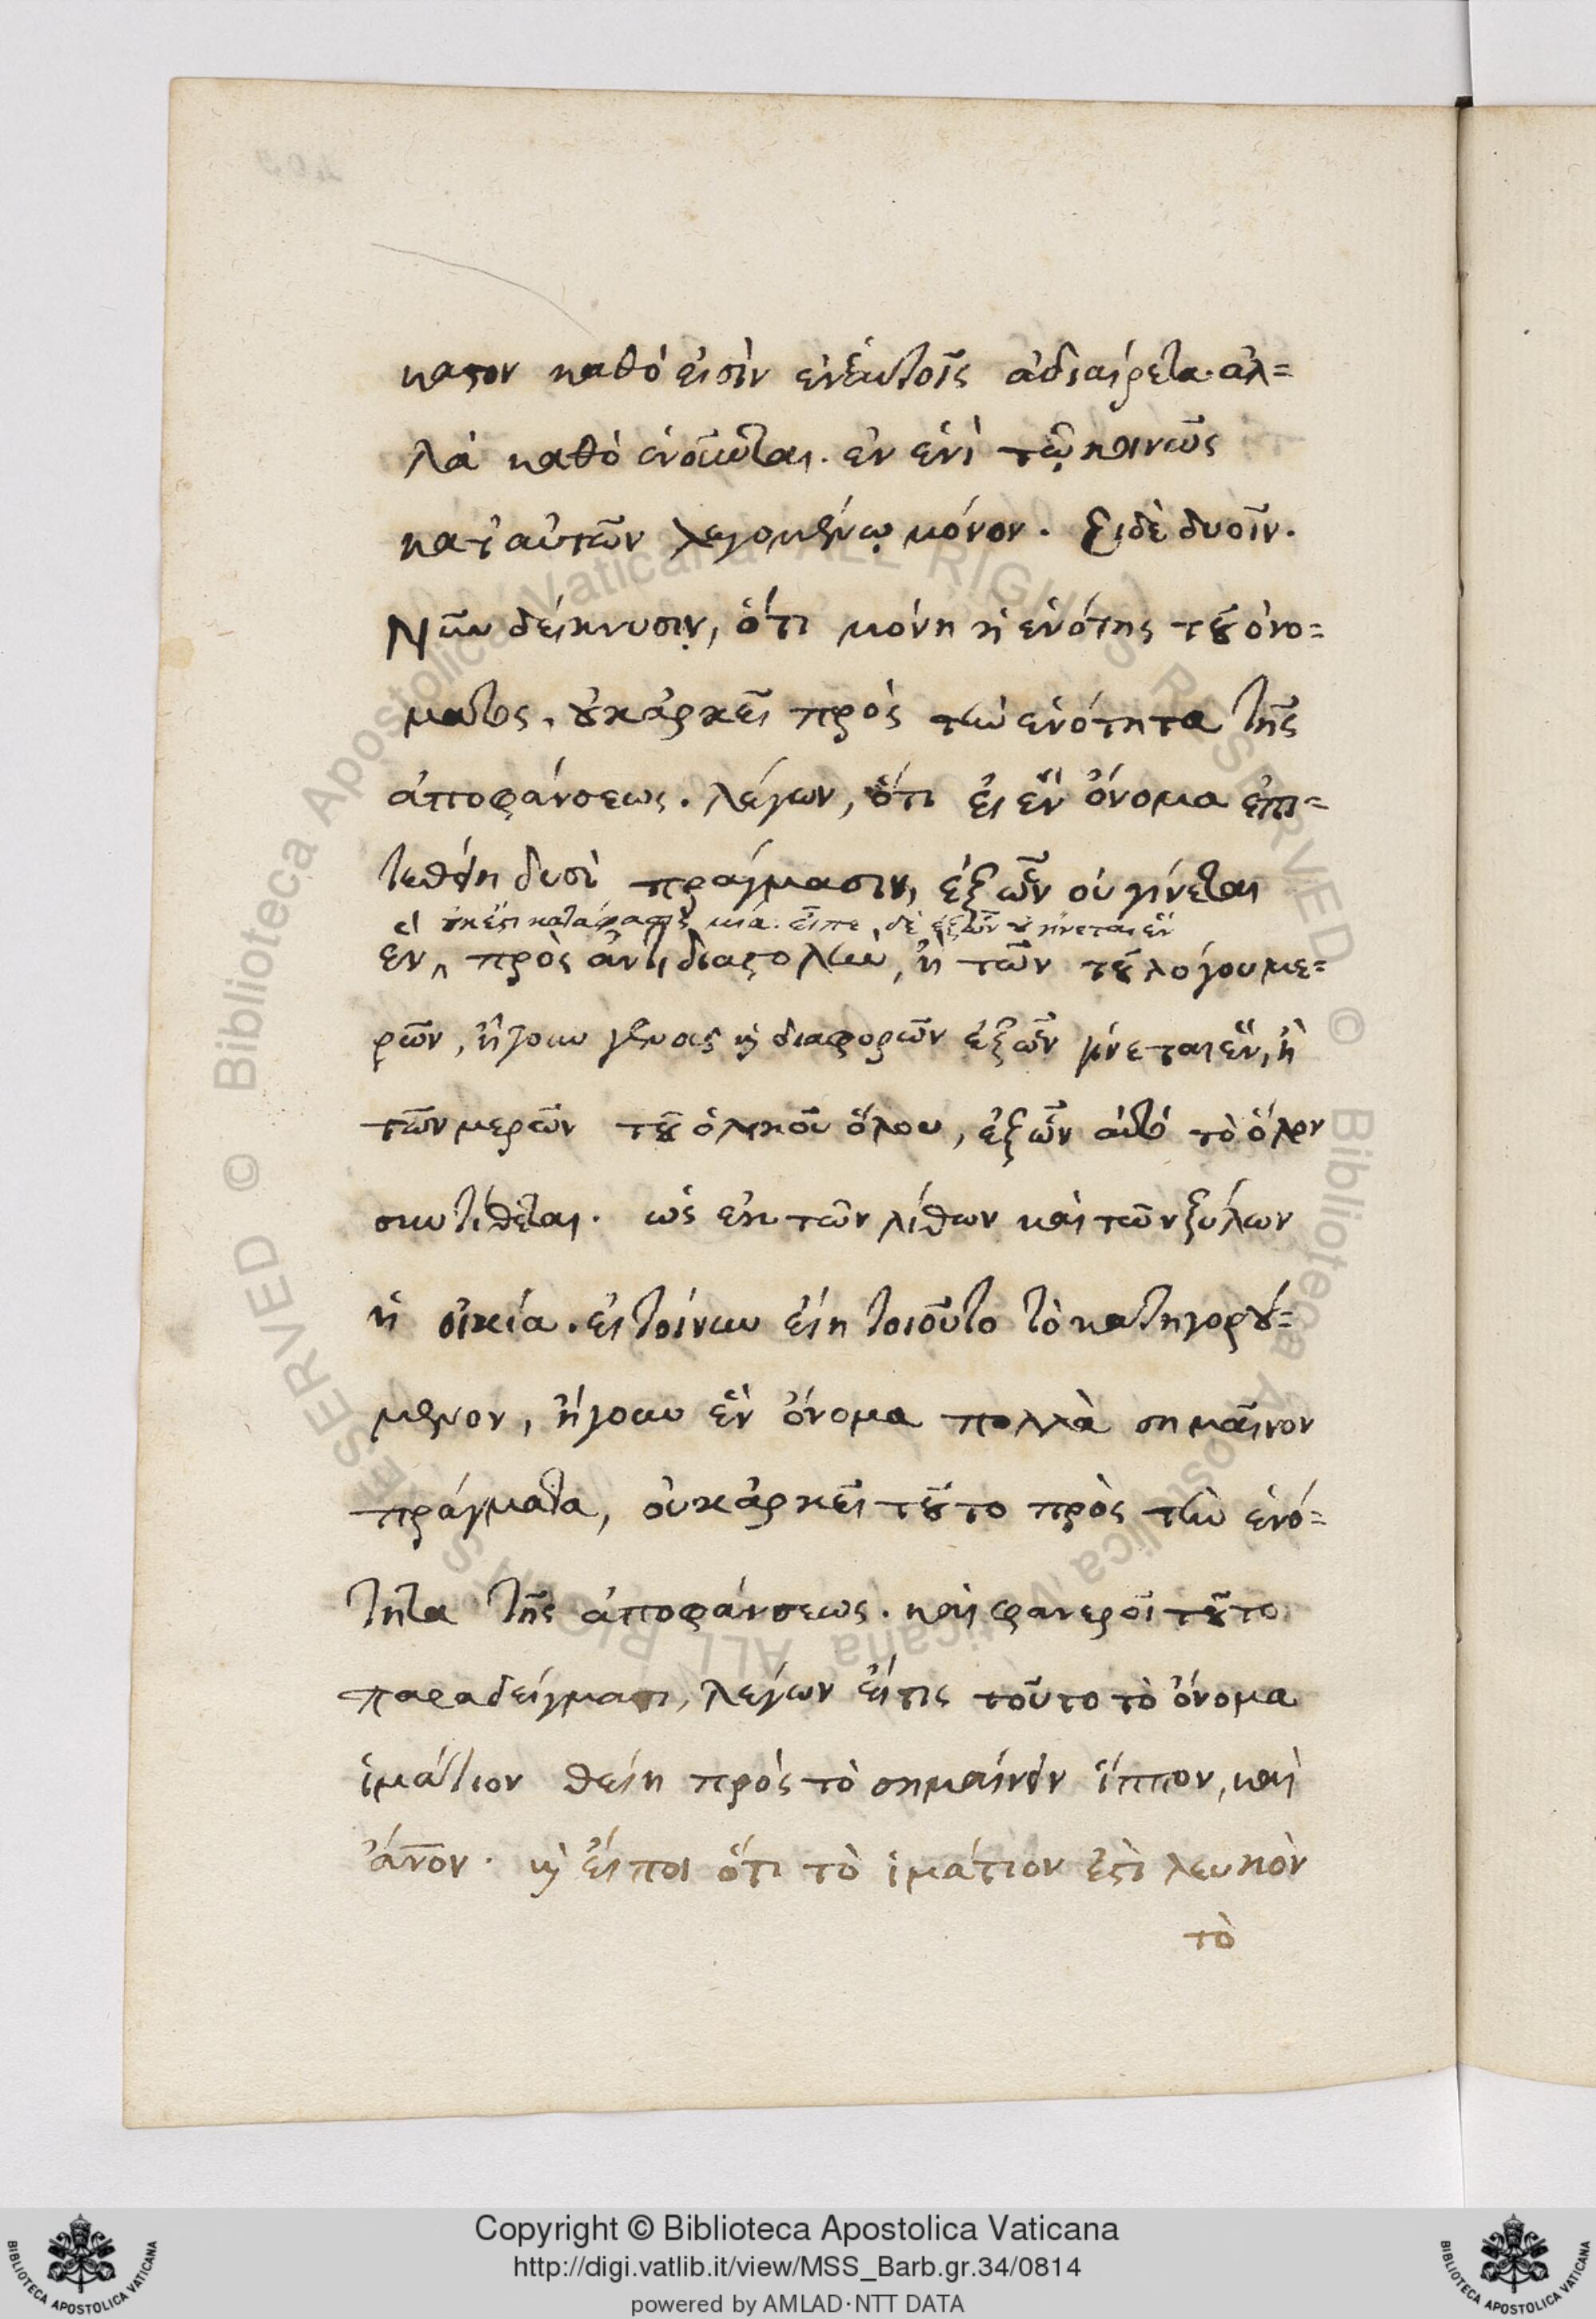 καστον καθό εἰσὶν ἐν ἑαυτοῖς ἀδιαίρετα. ἀλ=
λὰ καθὸ ἑνοῦνται. ἐν ἑνὶ τῷ κοινῶς
κατ' αὐτῶν λεγομένῳ μόνον. Εἰ δὲ δυοῖν.
Νῦν δείκνυσιν, ὅτι μόνη ἡ ἑνότης τοῦ ὀνό=
ματος, οὐκ ἀρκεῖ πρὸς τὴν ἑνότητα τῆς
ἀποφάνσεως. λέγων, ὅτι εἰ ἓν ὄνομα ἐπι=
τεθείη δυσὶ πράγμασιν, ἐξ ὧν οὐ γίνεται
οὐκ ἔστι κατάφασις μία. εἶπε δὲ ἐξ ὧν οὐ γίνεται ἓν
ἓν, πρὸς ἀντιδιαστολὴν, ἢ τῶν τοῦ λόγου με=
ρῶν, ἤγουν γένους καὶ διαφορῶν ἐξ ὧν γίνεται ἓν, ἢ
τῶν μερῶν τοῦ ὁλικοῦ ὅλου, ἐξ ὧν αὐτὸ τὸ ὅλον
συντίθεται. ὡς ἐκ τῶν λίθων καὶ τῶν ξύλων
ἡ οἰκία. εἰ τοίνυν εἴη τοιοῦτο τὸ κατηγορού=
μενον, ἤγουν ἓν ὄνομα πολλὰ σημαῖνον
πράγματα, οὐκ ἀρκεῖ τοῦτο πρὸς τὴν ἑνό=
τητα τῆς ἀποφάνσεως. καὶ φανεροῖ τοῦτο
παραδείγματι, λέγων εἴ τις τοῦτο τὸ ὄνομα
ἱμάτιον θείη πρὸς τὸ σημαίνειν ἵππον, καὶ
ἄνον. καὶ εἴποι ὅτι τὸ ἱμάτιον ἐστὶ λευκὸν
τὸ
Copyright © Biblioteca Apostolica Vaticana
http://digi.vatlib.it/view/MSS_Barb.gr.34/0814
powered by AMLAD·NTT DATA